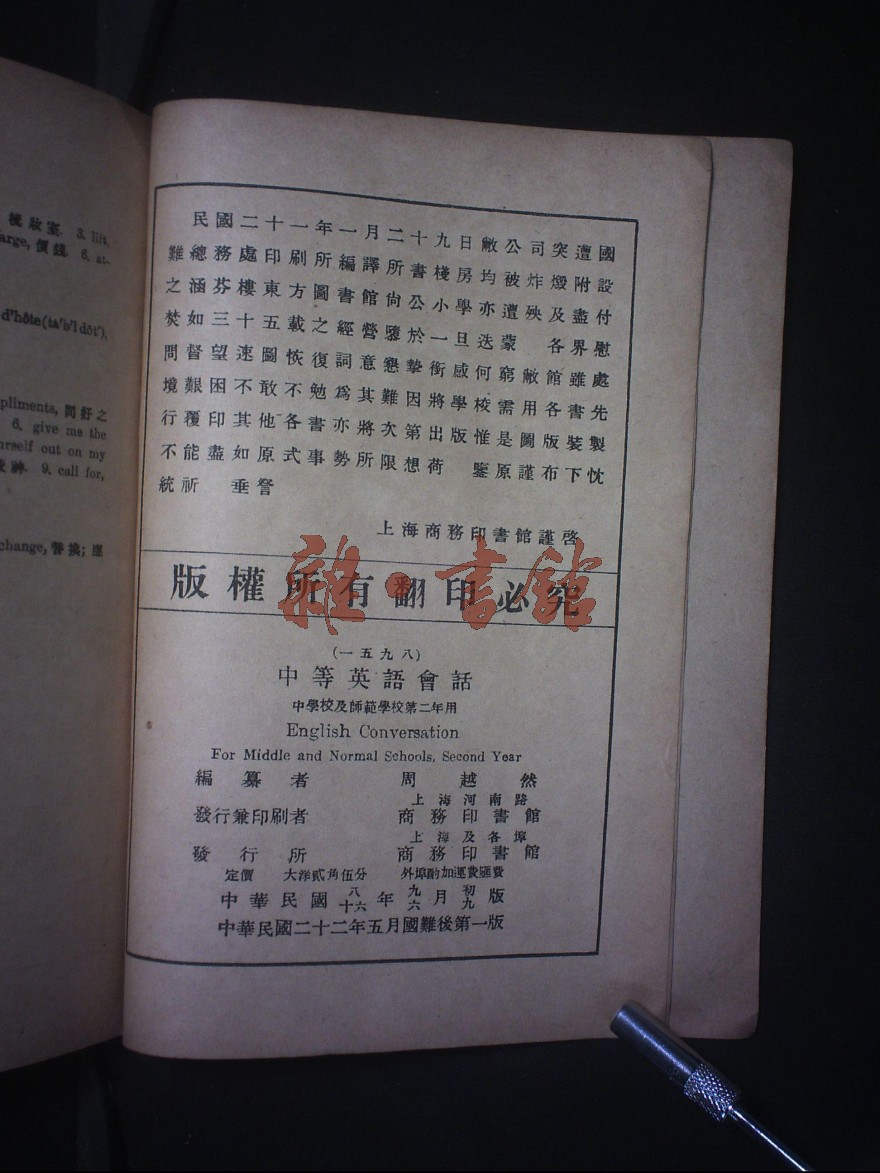 梳妝室. 3. lift,
arge, 價錢. 6. at-
d'hôte (tä'b'l dōt'),
pliments, 問好之
6. give me the
urself out on my
神. 9. call for,
change, 替換; 
民國二十一年一月二十九日敝公司突遭國
難總務處印刷所編譯所書棧房均被炸燬附設
之涵芬樓東方圖書館尚公小學亦遭殃及盡付
焚如三十五載之經營隳於一旦迭蒙 各界慰
問督望速圖恢復詞意懇摯銜感何窮敝館雖處
境艱困不敢不勉為其難因將學校需用各書先
行覆印其他各書亦將次第出版惟是圖版裝製
不能盡如原式事勢所限想荷 鑒原謹布下忱
統祈 垂詧
上海商務印書館謹啓
版權所有翻印必究
雜·書館
(一五九八)
中等英語會話
中學校及師範學校第二年用
English Conversation
For Middle and Normal Schools, Second Year
編纂者 周越然
上海河南路
發行兼印刷者 商務印書館
上海及各埠
發行所 商務印書館
定價 大洋貳角伍分 外埠酌加運費匯費
中華民國八年九月初版
十六 六 九
中華民國二十二年五月國難後第一版